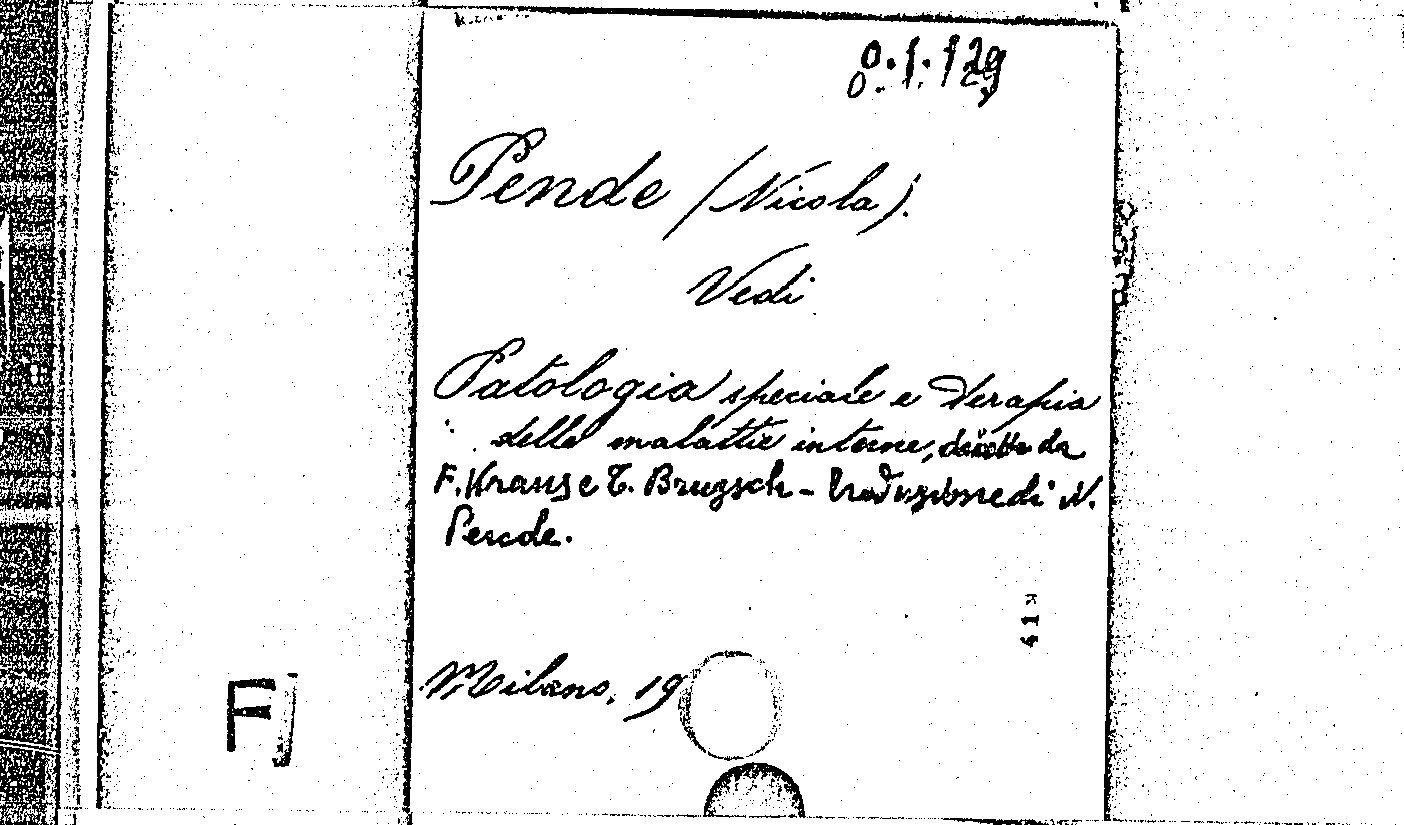 O.1.129
Pende (Nicola).
Vedi
Patologia speciale e terapia
delle malattie interne, dirette da
F. Kraus e T. Brugsch - Traduzione di N.
Pende.
Milano, 19
F